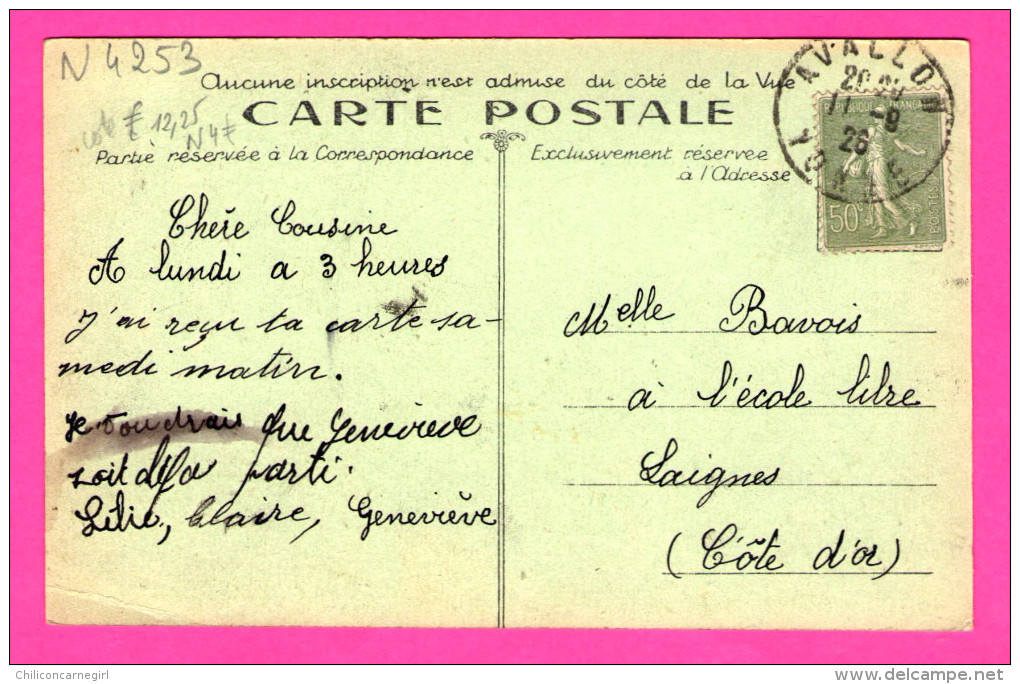 N 4253
Aucune inscription n'est admise du côté de la Vue
CARTE POSTALE
cote € 12,25
N4€
Partie réservée à la Correspondance
Exclusivement réservée
à l'Adresse
AVALLON
20
-9
26
YONNE
REPUBLIQUE FRANÇAISE
50c
POSTES
Chère Cousine
A lundi a 3 heures
J'ai reçu ta carte sa-
medi matin.
Je voudrais que Geneviève
soit déja parti.
Lilie, Claire, Geneviève
Melle Bavois
à l'école libre
Laignes
(Côte d'or)
Chiliconcarnegirl
www.delcampe.net